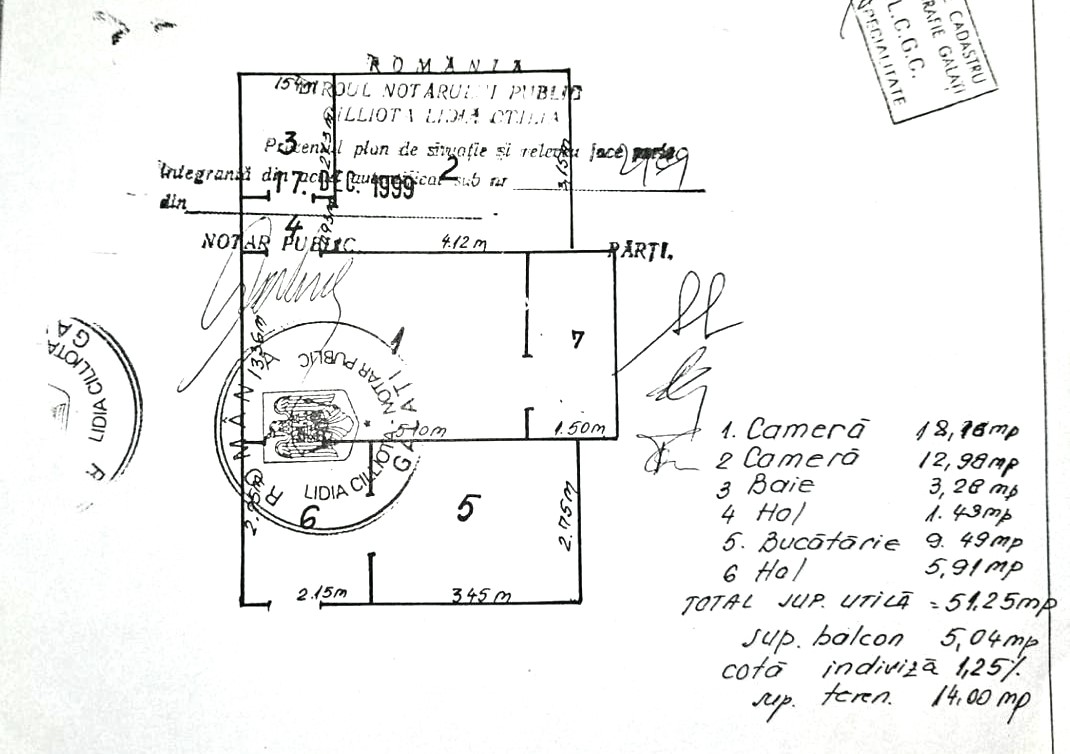 CADASTRU
GRAFIE GALAȚI
L.C.G.C.
SPECIALITATE
ROMÂNIA
BIROUL NOTARULUI PUBLIC
CILLIOTA LIDIA OTILIA
Prezentul plan de situație și releveu face parte
integrantă din actul autentificat sub nr
17. DEC. 1999
din
NOTAR PUBLIC
PĂRȚI.
154m
3
2
3.15m
4
4.12 m
1
7
3.36m
5.40m
1.50m
2.75m
6
5
2.75m
2.15m
3.45m
ROMÂNIA
NOTAR PUBLIC
LIDIA CILLIOTA
GALAȚI
LIDIA CILLIOTA
1. Cameră
2 Cameră 12,98mp
3 Baie 3,28 mp
4 Hol 1.49mp
5. Bucătărie 9.49mp
6 Hol 5,91mp
TOTAL SUP. UTILĂ = 51.25mp
sup. balcon 5,04mp
cotă indiviză 1,25%
sup. teren. 14.00 mp